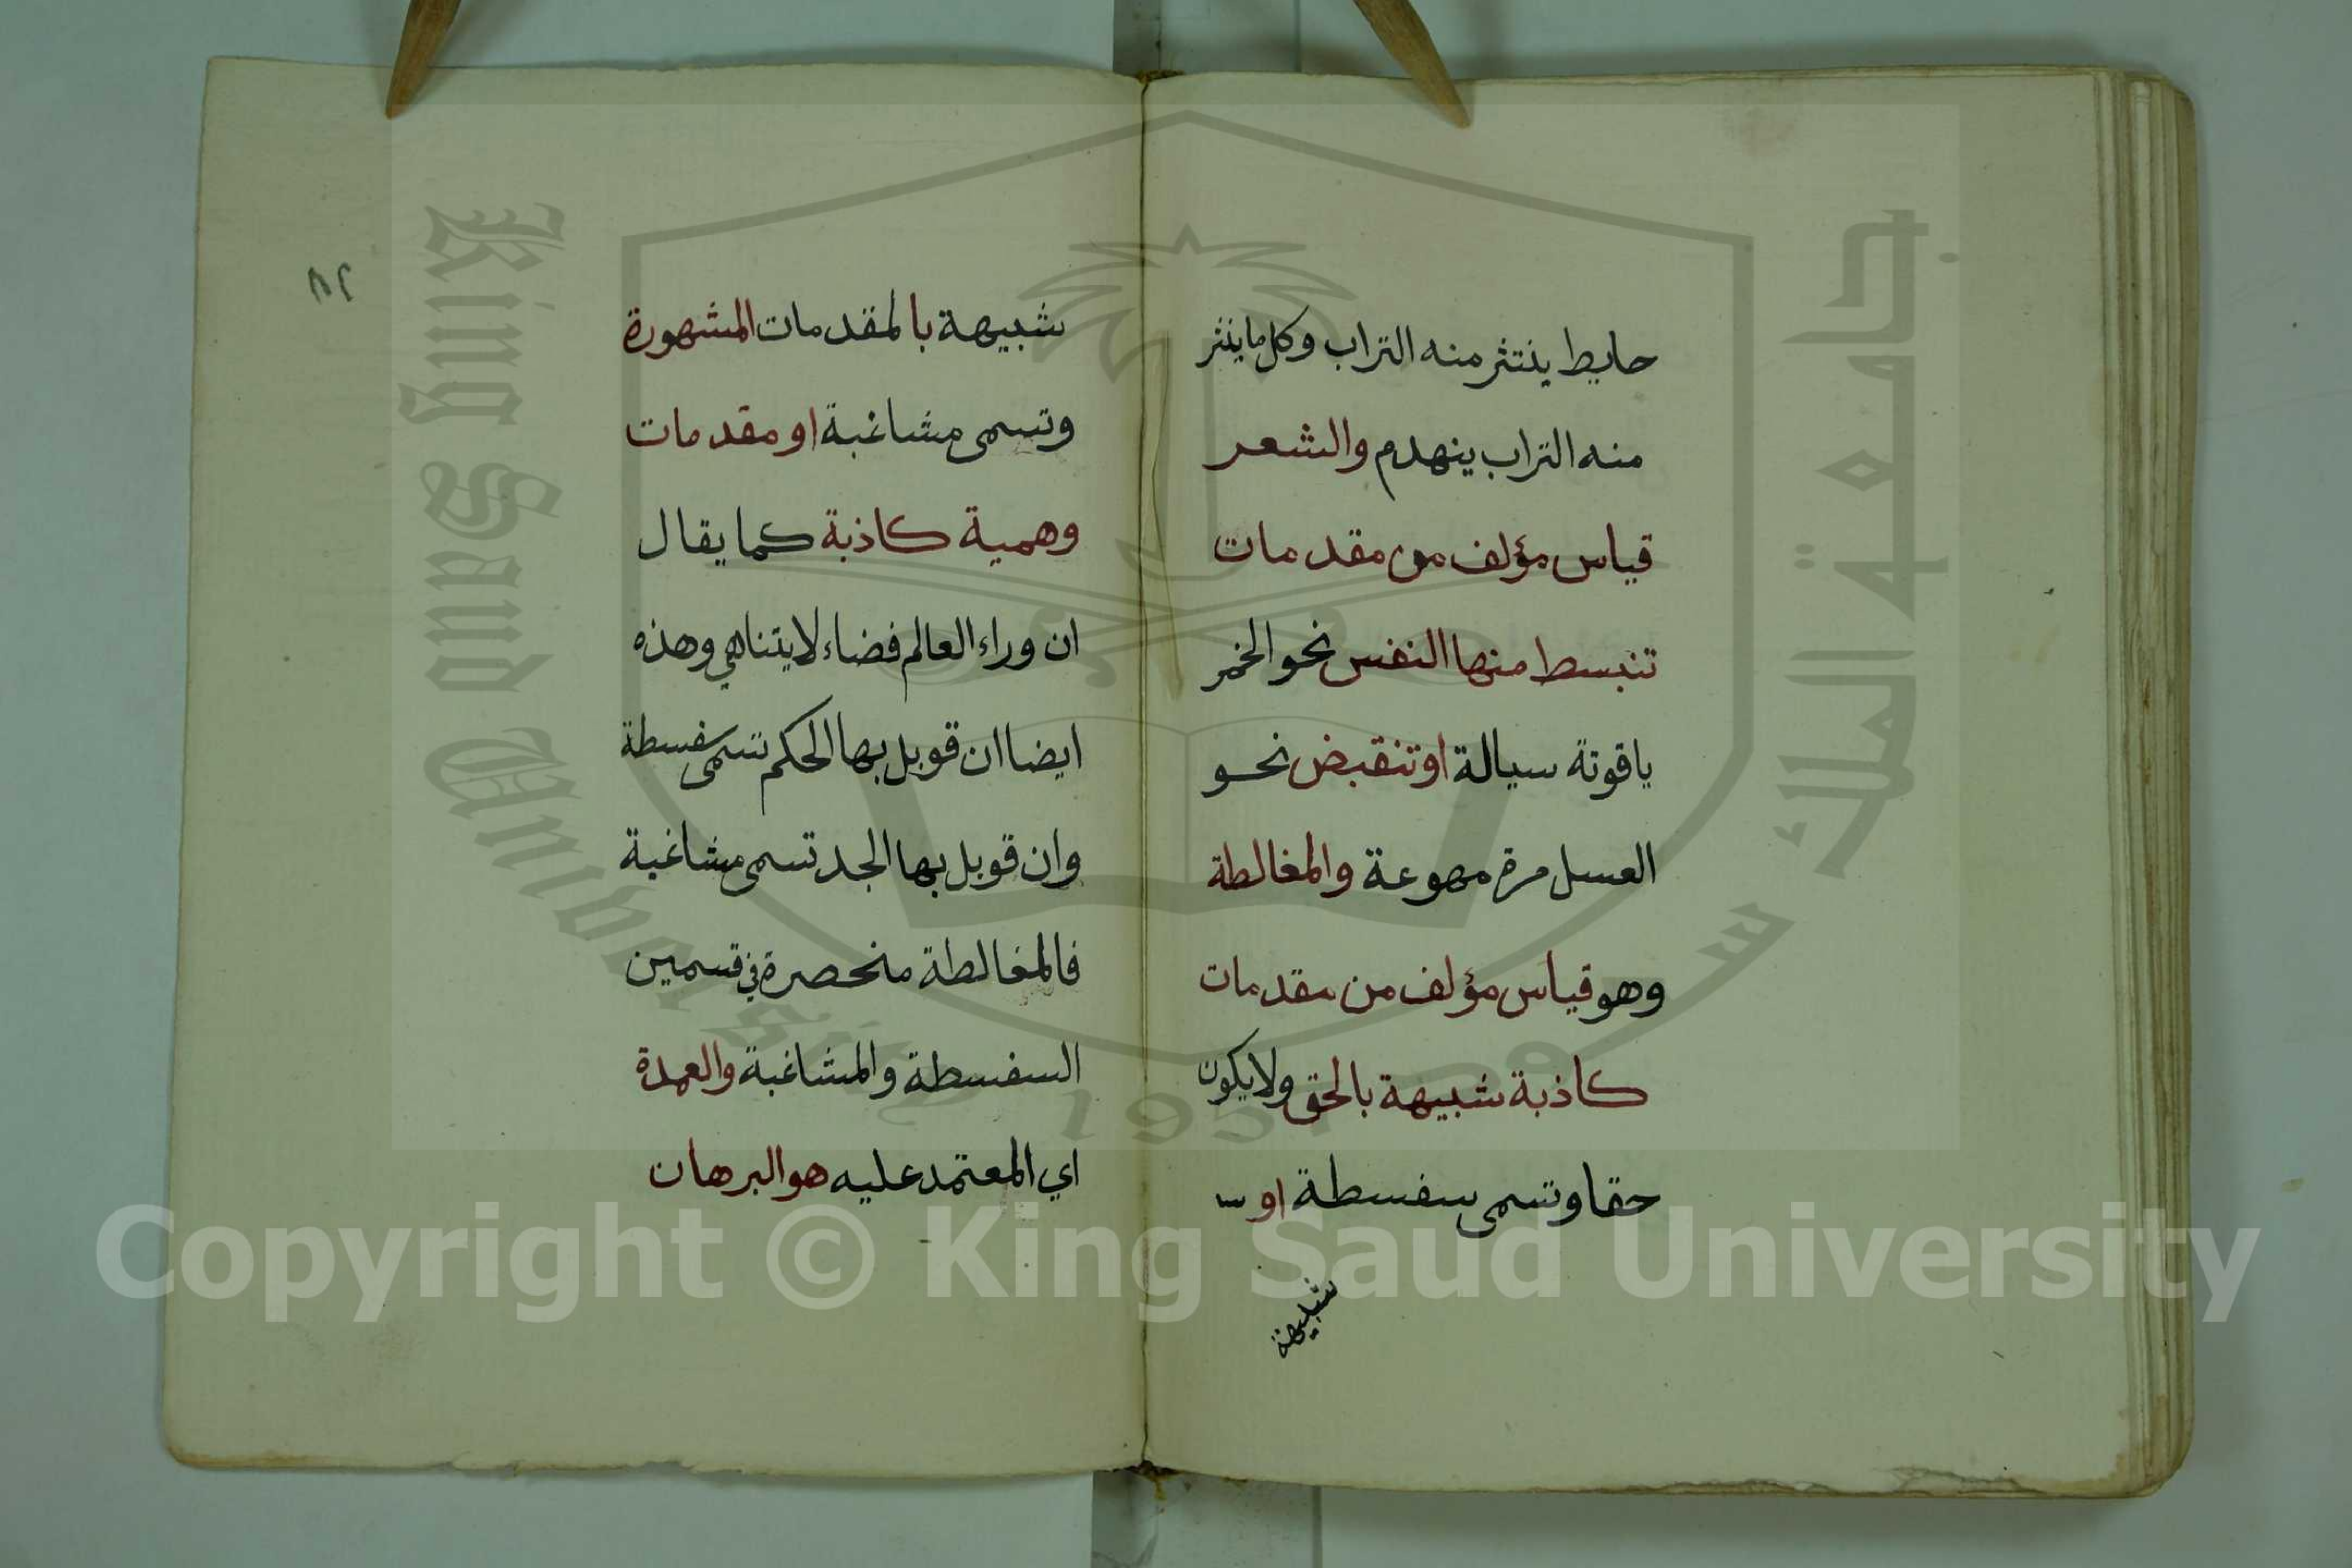 حايط ينتثر منه التراب وكل ما ينثر
منه التراب ينهدم والشعر
قياس مؤلف من مقدمات
تنبسط منها النفس نحو الخمر
ياقوتة سيالة او تنقبض نحو
العسل مرة مهوعة والمغالطة
وهو قياس مؤلف من مقدمات
كاذبة شبيهة بالحق ولا يكون
حقا وتسمى سفسطة او
شبيهة
شبيهة بالمقدمات المشهورة
وتسمى مشاغبة او مقدمات
وهمية كاذبة كما يقال
ان وراء العالم فضاء لا يتناهي وهذه
ايضا ان قوبل بها الحكم تسمى سفسطة
وان قوبل بها الجد تسمى مشاغبة
فالمغالطة منحصرة في قسمين
السفسطة والمشاغبة والعمدة
اي المعتمد عليه هو البرهان
King Saud University
جامعة الملك سعود
1957
Copyright © King Saud University